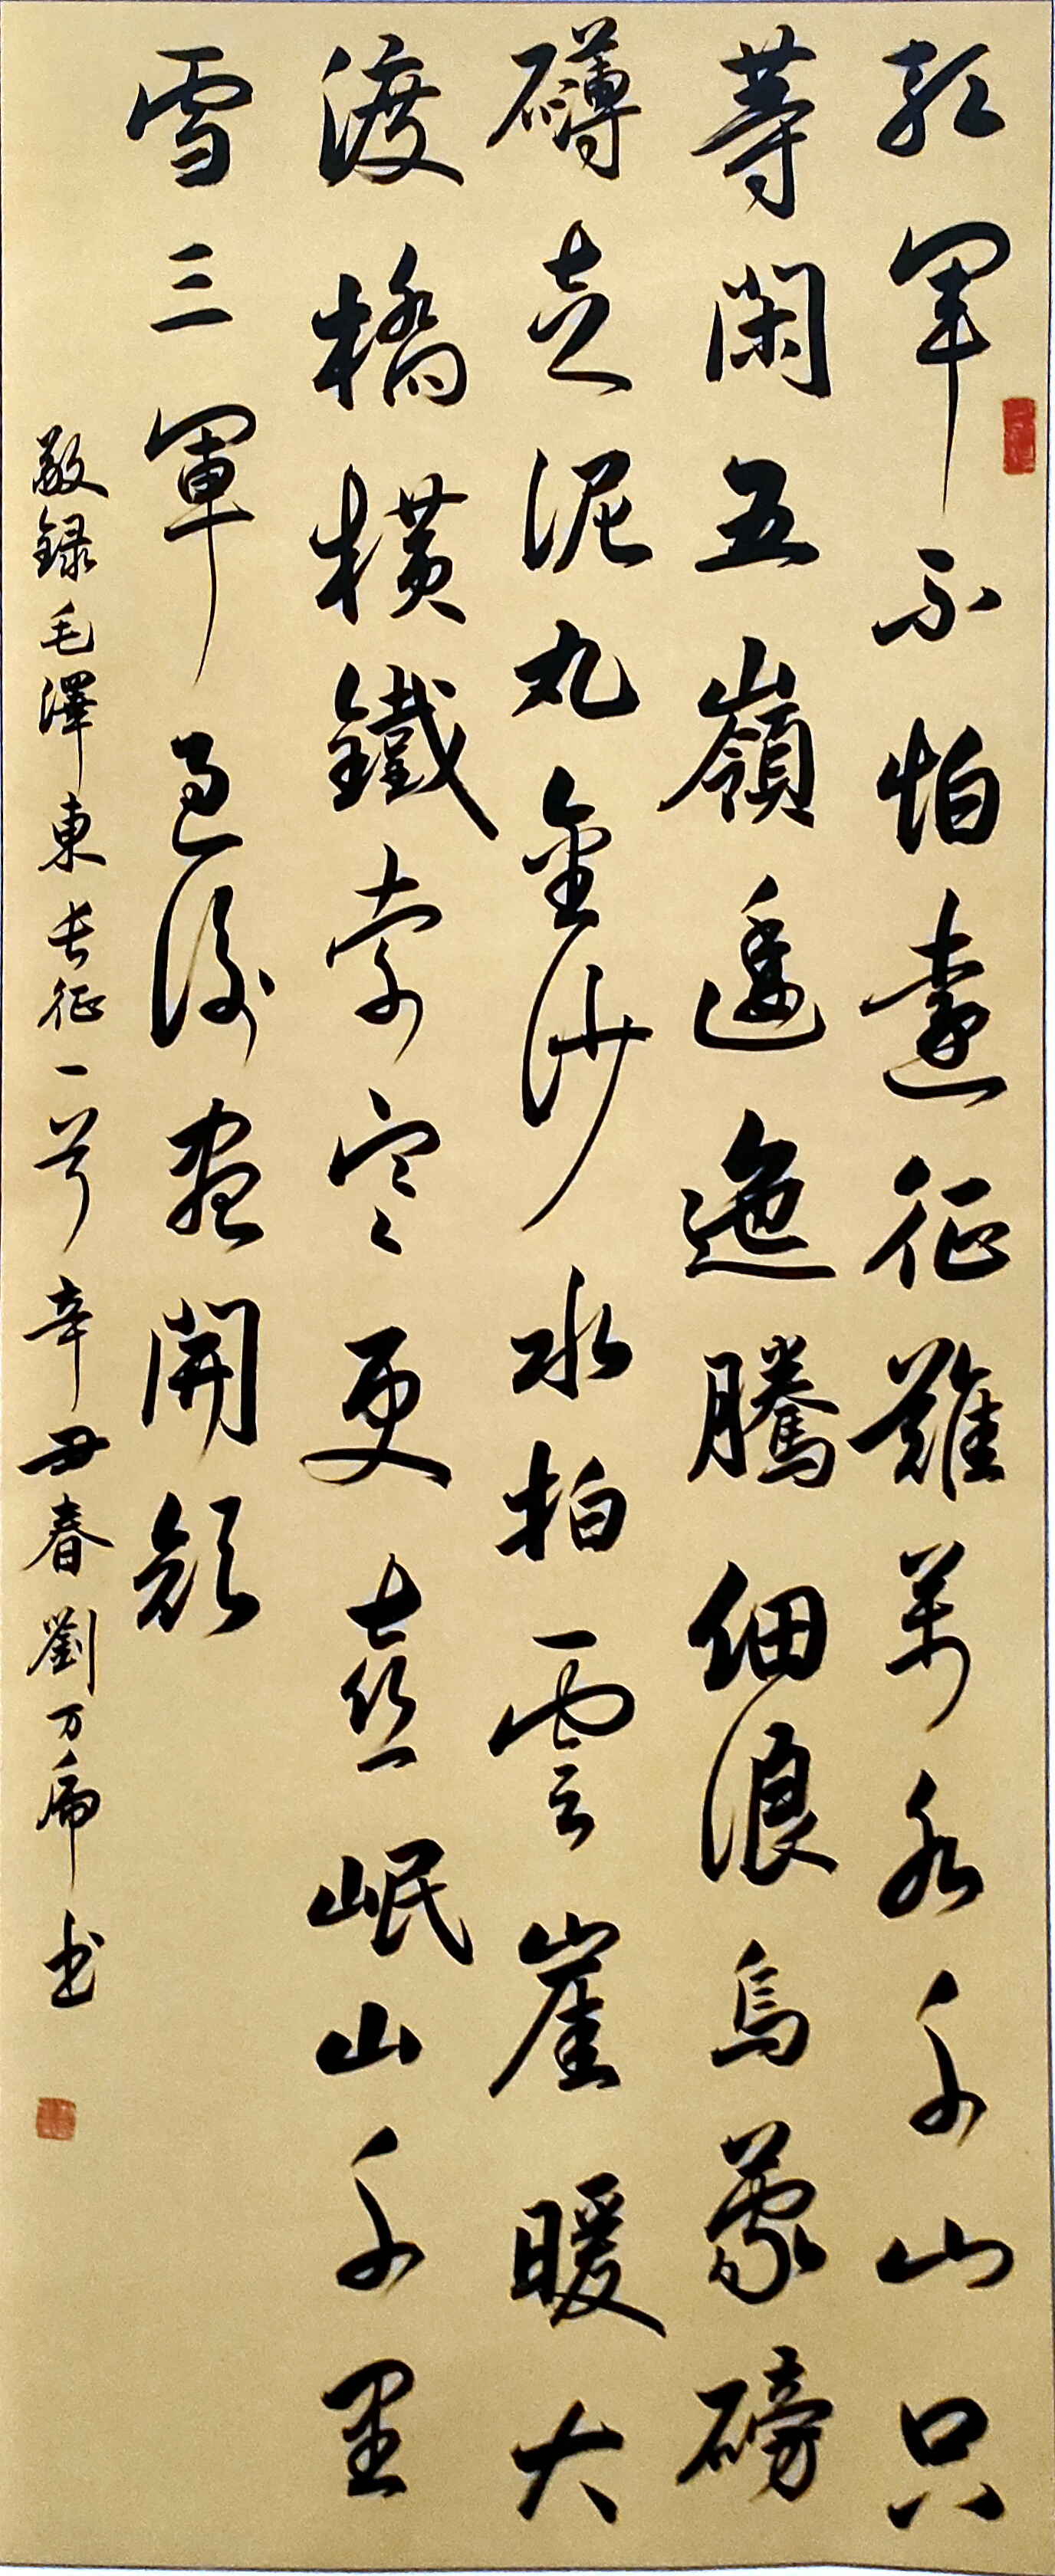 紅軍不怕遠征難萬水千山只
等閑五嶺逶迤騰細浪烏蒙磅
礴走泥丸金沙水拍雲崖暖大
渡橋橫鐵索寒更喜岷山千里
雪三軍過後盡開顏
敬錄毛澤東長征一首辛丑春劉万帝书